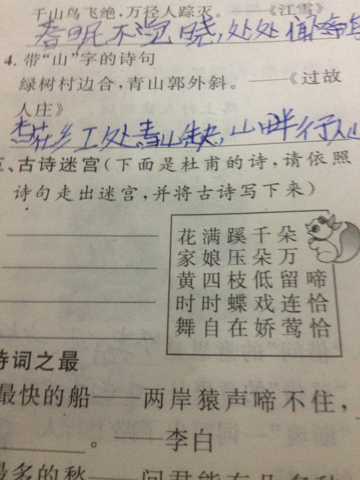 千山鸟飞绝,万径人踪灭。——《江雪》
春眠不觉晓,处处闻啼鸟
4. 带“山”字的诗句
绿树村边合,青山郭外斜。——《过故
人庄》
处青山缺,山畔行人
、古诗迷宫(下面是杜甫的诗,请依照
诗句走出迷宫,并将古诗写下来)
花满蹊千朵
家娘压朵万
黄四枝低留啼
时时蝶戏连恰
舞自在娇莺恰
诗词之最
最快的船——两岸猿声啼不住,
。——李白
最多的愁——问君能有几多愁